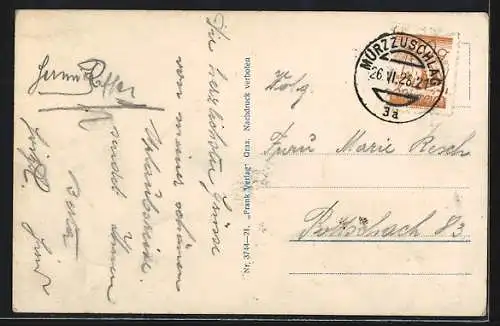 Die herzlichsten Grüsse
von meiner schönen
Urlaubsreise.
sendet Ihnen
Berta
Nr. 3744—21. „Frank-Verlag“ Graz. Nachdruck verboten
MÜRZZUSCHLAG
26.VI.28
Frau Marie Resch
Pottschach 83